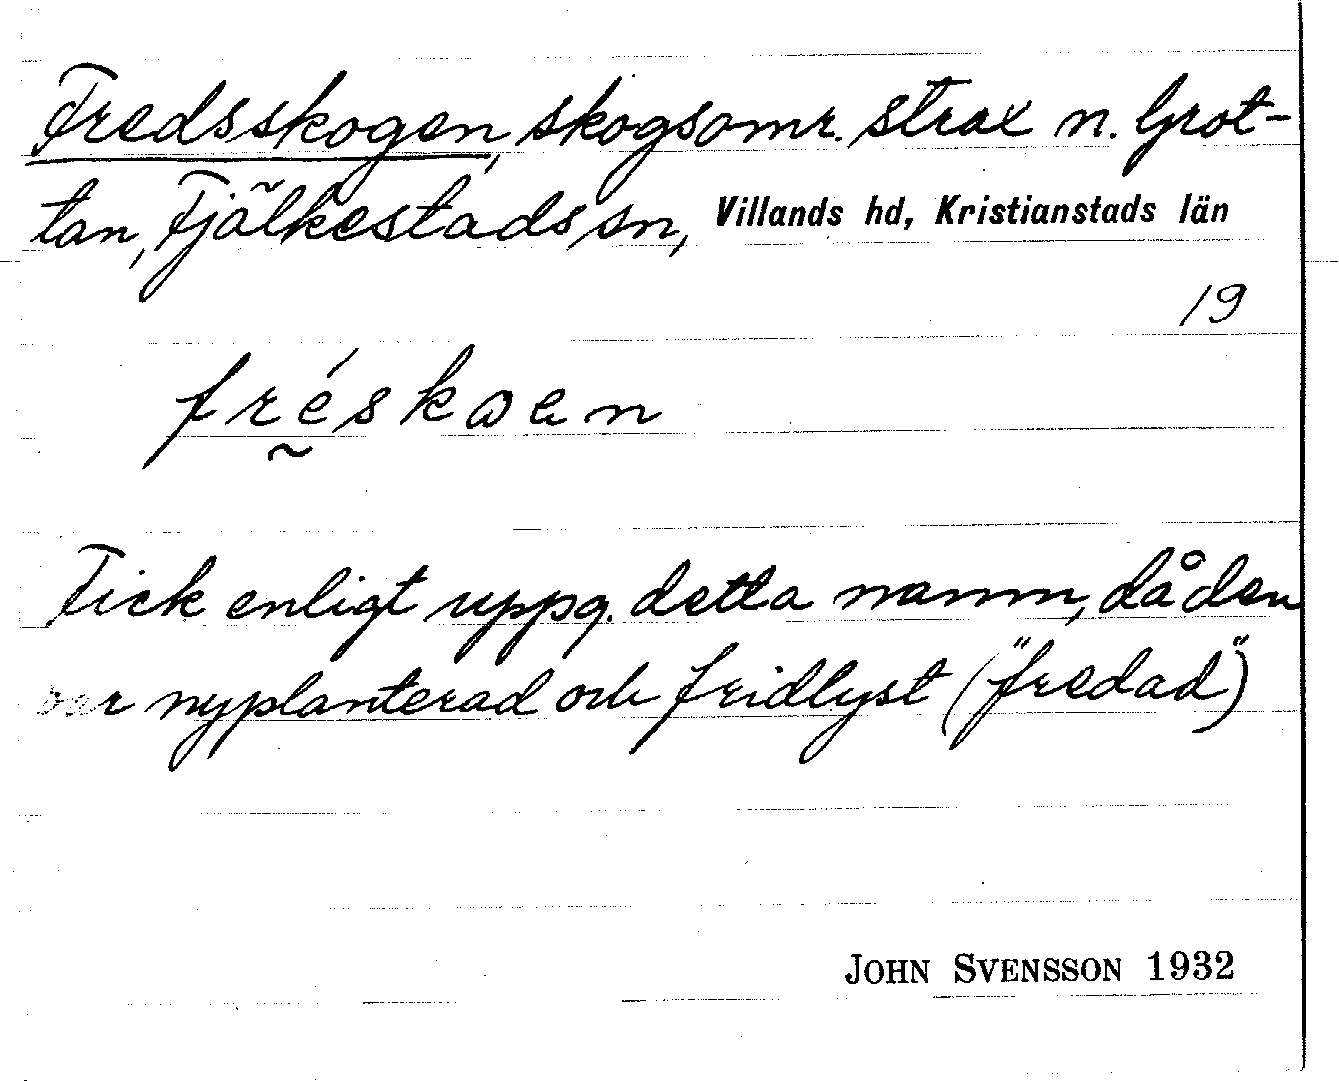 Fredsskogen, skogsomr. strax n. Grot-
tan, Fjälkestads sn, Villands hd, Kristianstads län
19
fréskɷen
Fick enligt uppg. detta namn, då den
var nyplanterad och fridlyst ("fredad")
JOHN SVENSSON 1932